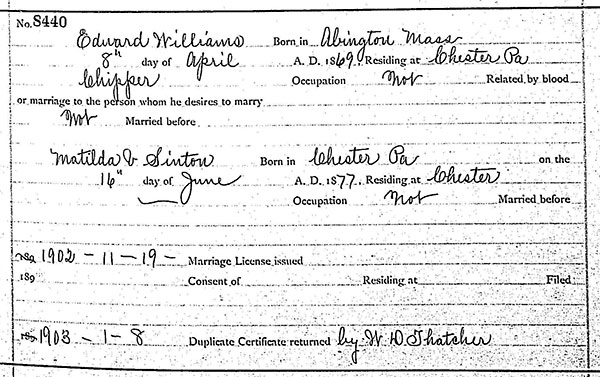 No. S440
Edward Williams Born in Abington Mass
8" day of April A. D. 1869, Residing at Chester Pa
Chipper Occupation Not Related by blood
or marriage to the person whom he desires to marry
Not Married before
Matilda V Sinton Born in Chester Pa on the
16" day of June A. D. 1877, Residing at Chester
Occupation Not Married before
189 1902 - 11 - 19 - Marriage License issued
189 Consent of Residing at Filed
189 1903 - 1 - 8 Duplicate Certificate returned by W D Thatcher